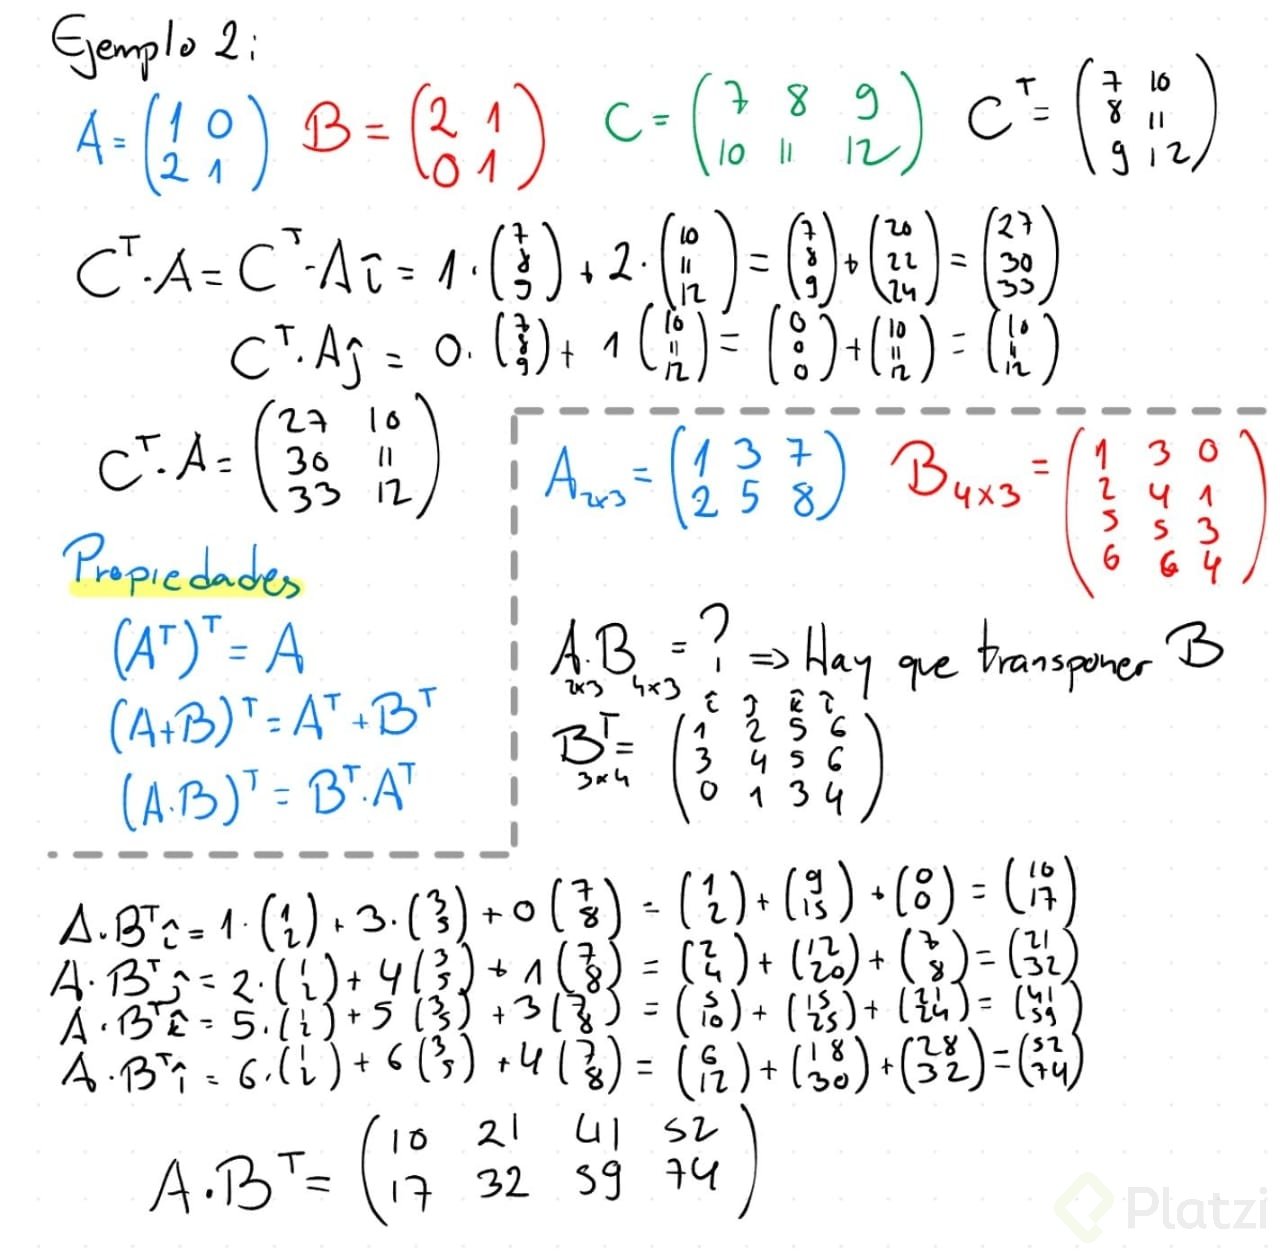 Ejemplo 2:
A = (1 0 / 2 1) B = (2 1 / 0 1) C = (7 8 9 / 10 11 12) Cᵀ = (7 10 / 8 11 / 9 12)
Cᵀ·A = Cᵀ·Aî = 1·(7 / 8 / 9) + 2·(10 / 11 / 12) = (7 / 8 / 9) + (20 / 22 / 24) = (27 / 30 / 33)
Cᵀ·Aĵ = 0·(7 / 8 / 9) + 1(10 / 11 / 12) = (0 / 0 / 0) + (10 / 11 / 12) = (10 / 11 / 12)
Cᵀ·A = (27 10 / 30 11 / 33 12)
Propiedades
(Aᵀ)ᵀ = A
(A+B)ᵀ = Aᵀ + Bᵀ
(A·B)ᵀ = Bᵀ·Aᵀ
A₂ₓ₃ = (1 3 7 / 2 5 8) B₄ₓ₃ = (1 3 0 / 2 4 1 / 5 5 3 / 6 6 4)
A·B = ? ⇒ Hay que transponer B
2x3 4x3
î ĵ k̂ î
Bᵀ = (1 2 5 6 / 3 4 5 6 / 0 1 3 4)
3x4
A·Bᵀî = 1·(1 / 2) + 3·(3 / 5) + 0(7 / 8) = (1 / 2) + (9 / 15) + (0 / 0) = (10 / 17)
A·Bᵀĵ = 2·(1 / 2) + 4(3 / 5) + 1(7 / 8) = (2 / 4) + (12 / 20) + (7 / 8) = (21 / 32)
A·Bᵀk̂ = 5·(1 / 2) + 5(3 / 5) + 3(7 / 8) = (5 / 10) + (15 / 25) + (21 / 24) = (41 / 59)
A·Bᵀî = 6·(1 / 2) + 6(3 / 5) + 4(7 / 8) = (6 / 12) + (18 / 30) + (28 / 32) = (52 / 74)
A·Bᵀ = (10 21 41 52 / 17 32 59 74)
Platzi